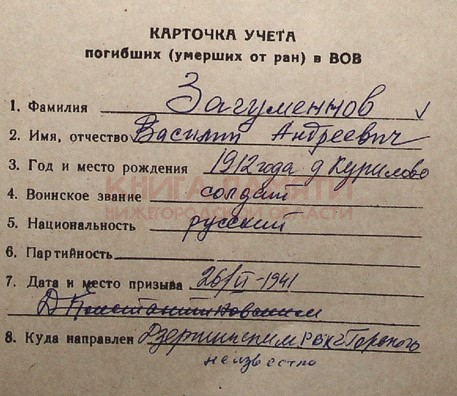 КАРТОЧКА УЧЕТА
погибших (умерших от ран) в ВОВ
1. Фамилия Загуменнов
2. Имя, отчество Василий Андреевич
3. Год и место рождения 1912 года д Курилово
4. Воинское звание солдат
КНИГА ПАМЯТИ
НИЖЕГОРОДСКОЙ ОБЛАСТИ
5. Национальность русский
6. Партийность
7. Дата и место призыва 26/VI-1941
8. Куда направлен Дзержинским РВК г Горького
неизвестно